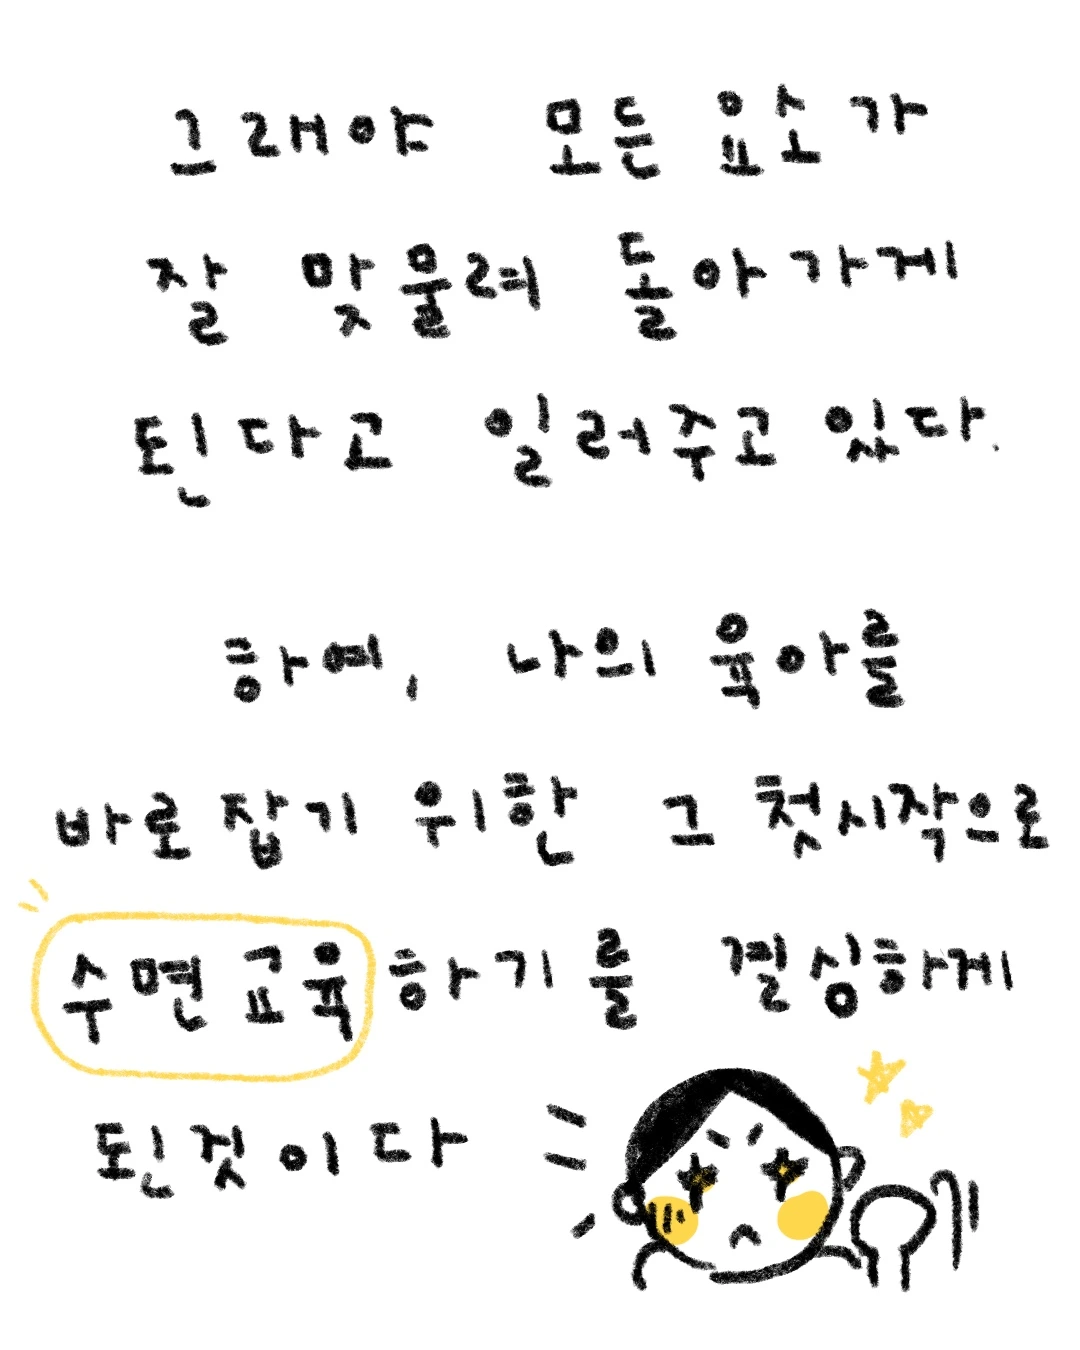 그래야 모든 요소가
잘 맞물려 돌아가게
된다고 일러주고있다.
하여, 나의 육아를
바로잡기 위한 그 첫시작으로
수면교육하기를 결심하게
된것이다